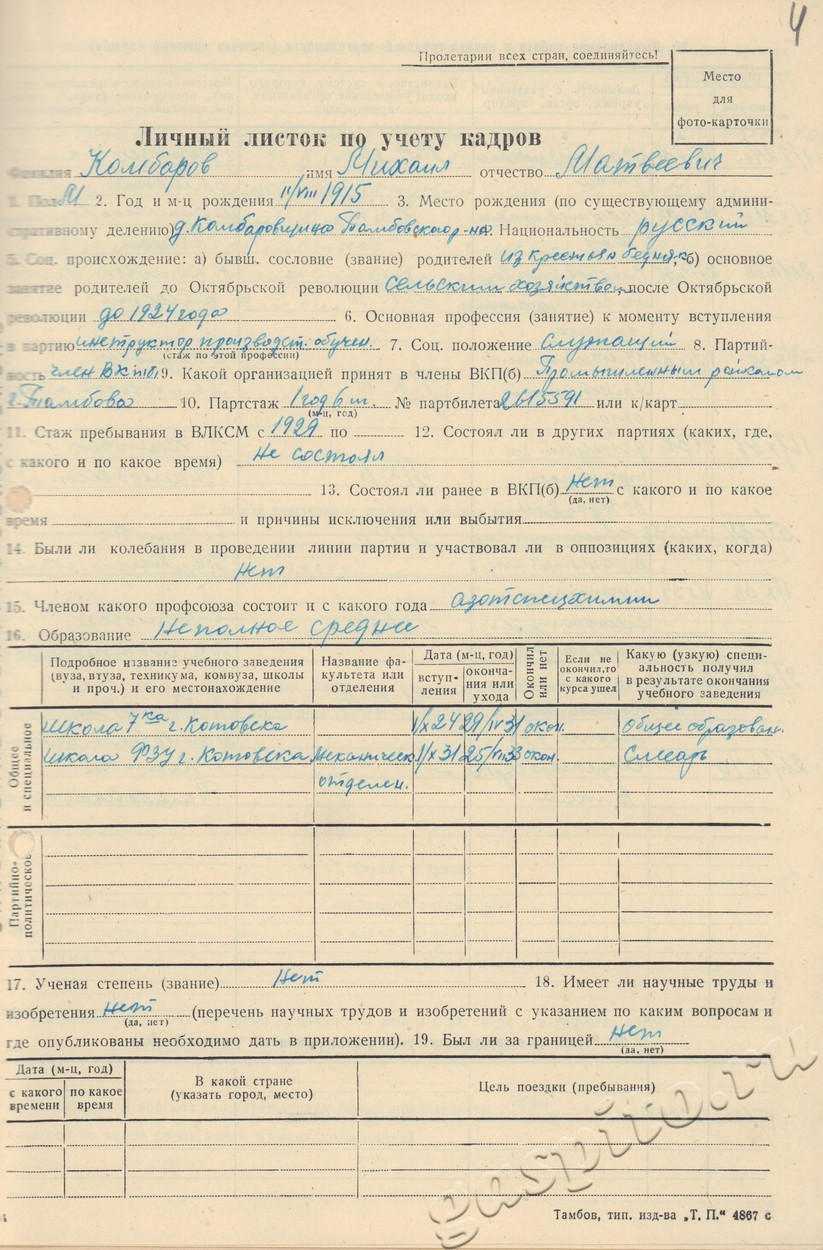 4
Пролетарии всех стран, соединяйтесь!
Место
для
фото-карточки
Личный листок по учету кадров
Фамилия Комбаров имя Михаил отчество Матвеевич
1. Пол М 2. Год и м-ц рождения 11/VIII 1915 3. Место рождения (по существующему админи-
стративному делению) д. Комбаровщина Тамбовского р-на. Национальность русский
5. Соц. происхождение: а) бывш. сословие (звание) родителей из крестьян бедняк б) основное
занятие родителей до Октябрьской революции Сельским хозяйством после Октябрьской
революции до 1924 года 6. Основная профессия (занятие) к моменту вступления
в партию инструктор производст. обучен. 7. Соц. положение служащий 8. Партий-
(стаж по этой профессии)
ность член ВКП(б) 9. Какой организацией принят в члены ВКП(б) Промышленным райкомом
г. Тамбова 10. Партстаж 1 год 6 м. № партбилета 2615591 или к/карт
(м-ц, год)
11. Стаж пребывания в ВЛКСМ с 1929 по 12. Состоял ли в других партиях (каких, где,
с какого и по какое время) Не состоял
13. Состоял ли ранее в ВКП(б) Нет с какого и по какое
(да, нет)
время и причины исключения или выбытия
14. Были ли колебания в проведении линии партии и участвовал ли в оппозициях (каких, когда)
Нет
15. Членом какого профсоюза состоит и с какого года азотспецхимии
16. Образование Неполное средне
Подробное название учебного заведения (вуза, втуза, техникума, комвуза, школы и проч.) и его местонахождение
Название факультета или отделения
Дата (м-ц, год)
вступ-
ления
оконча-
ния или
ухода
Окончил или нет
Если не окончил, то с какого курса ушел
Какую (узкую) специ-
альность получил
в результате окончания
учебного заведения
Общее и специальное
Школа 7ка г. Котовска 1/X 24 29/IV 31 окон. Общее образован.
Школа ФЗУ г. Котовска Механическ. 1/X 31 25/VII 33 окон. Слесарь
отделен.
Партийно-
политическое
17. Ученая степень (звание) Нет 18. Имеет ли научные труды и
изобретения нет (перечень научных трудов и изобретений с указанием по каким вопросам и
(да, нет)
где опубликованы необходимо дать в приложении). 19. Был ли за границей Нет
(да, нет)
Дата (м-ц, год)
с какого
времени
по какое
время
В какой стране
(указать город, место)
Цель поездки (пребывания)
gaspito.ru
Тамбов, тип. изд-ва „Т. П." 4867 с